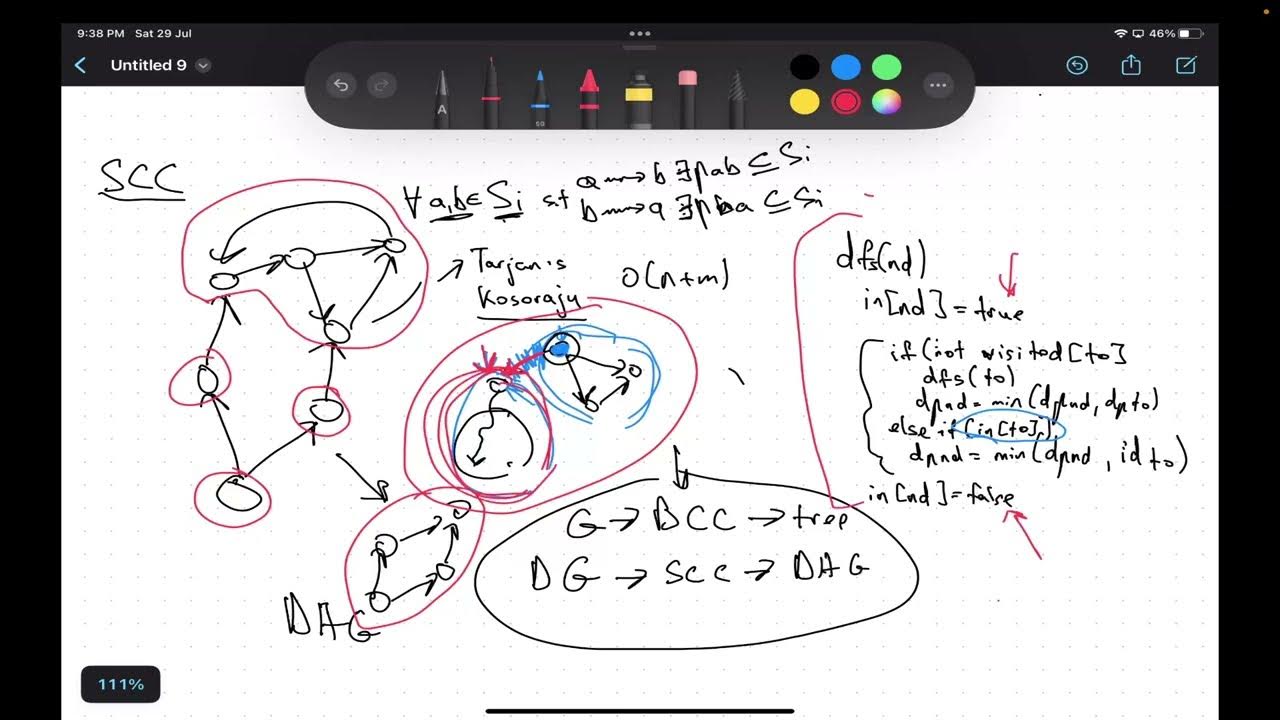 9:38 PM Sat 29 Jul
46%
Untitled 9
A
50
SCC
∀ a,b ∈ Si s.t
a ⇝ b ∃pab ⊆ Si
b ⇝ a ∃pba ⊆ Si
Tarjan's
Kosoraju
O(n+m)
dfs(nd)
in[nd] = true
if (not visited[to]
dfs(to)
dpnd = min(dpnd, dpto)
else if (in[to])
dpnd = min(dpnd, idto)
in[nd] = false
G → BCC → tree
DG → SCC → DAG
DAG
111%